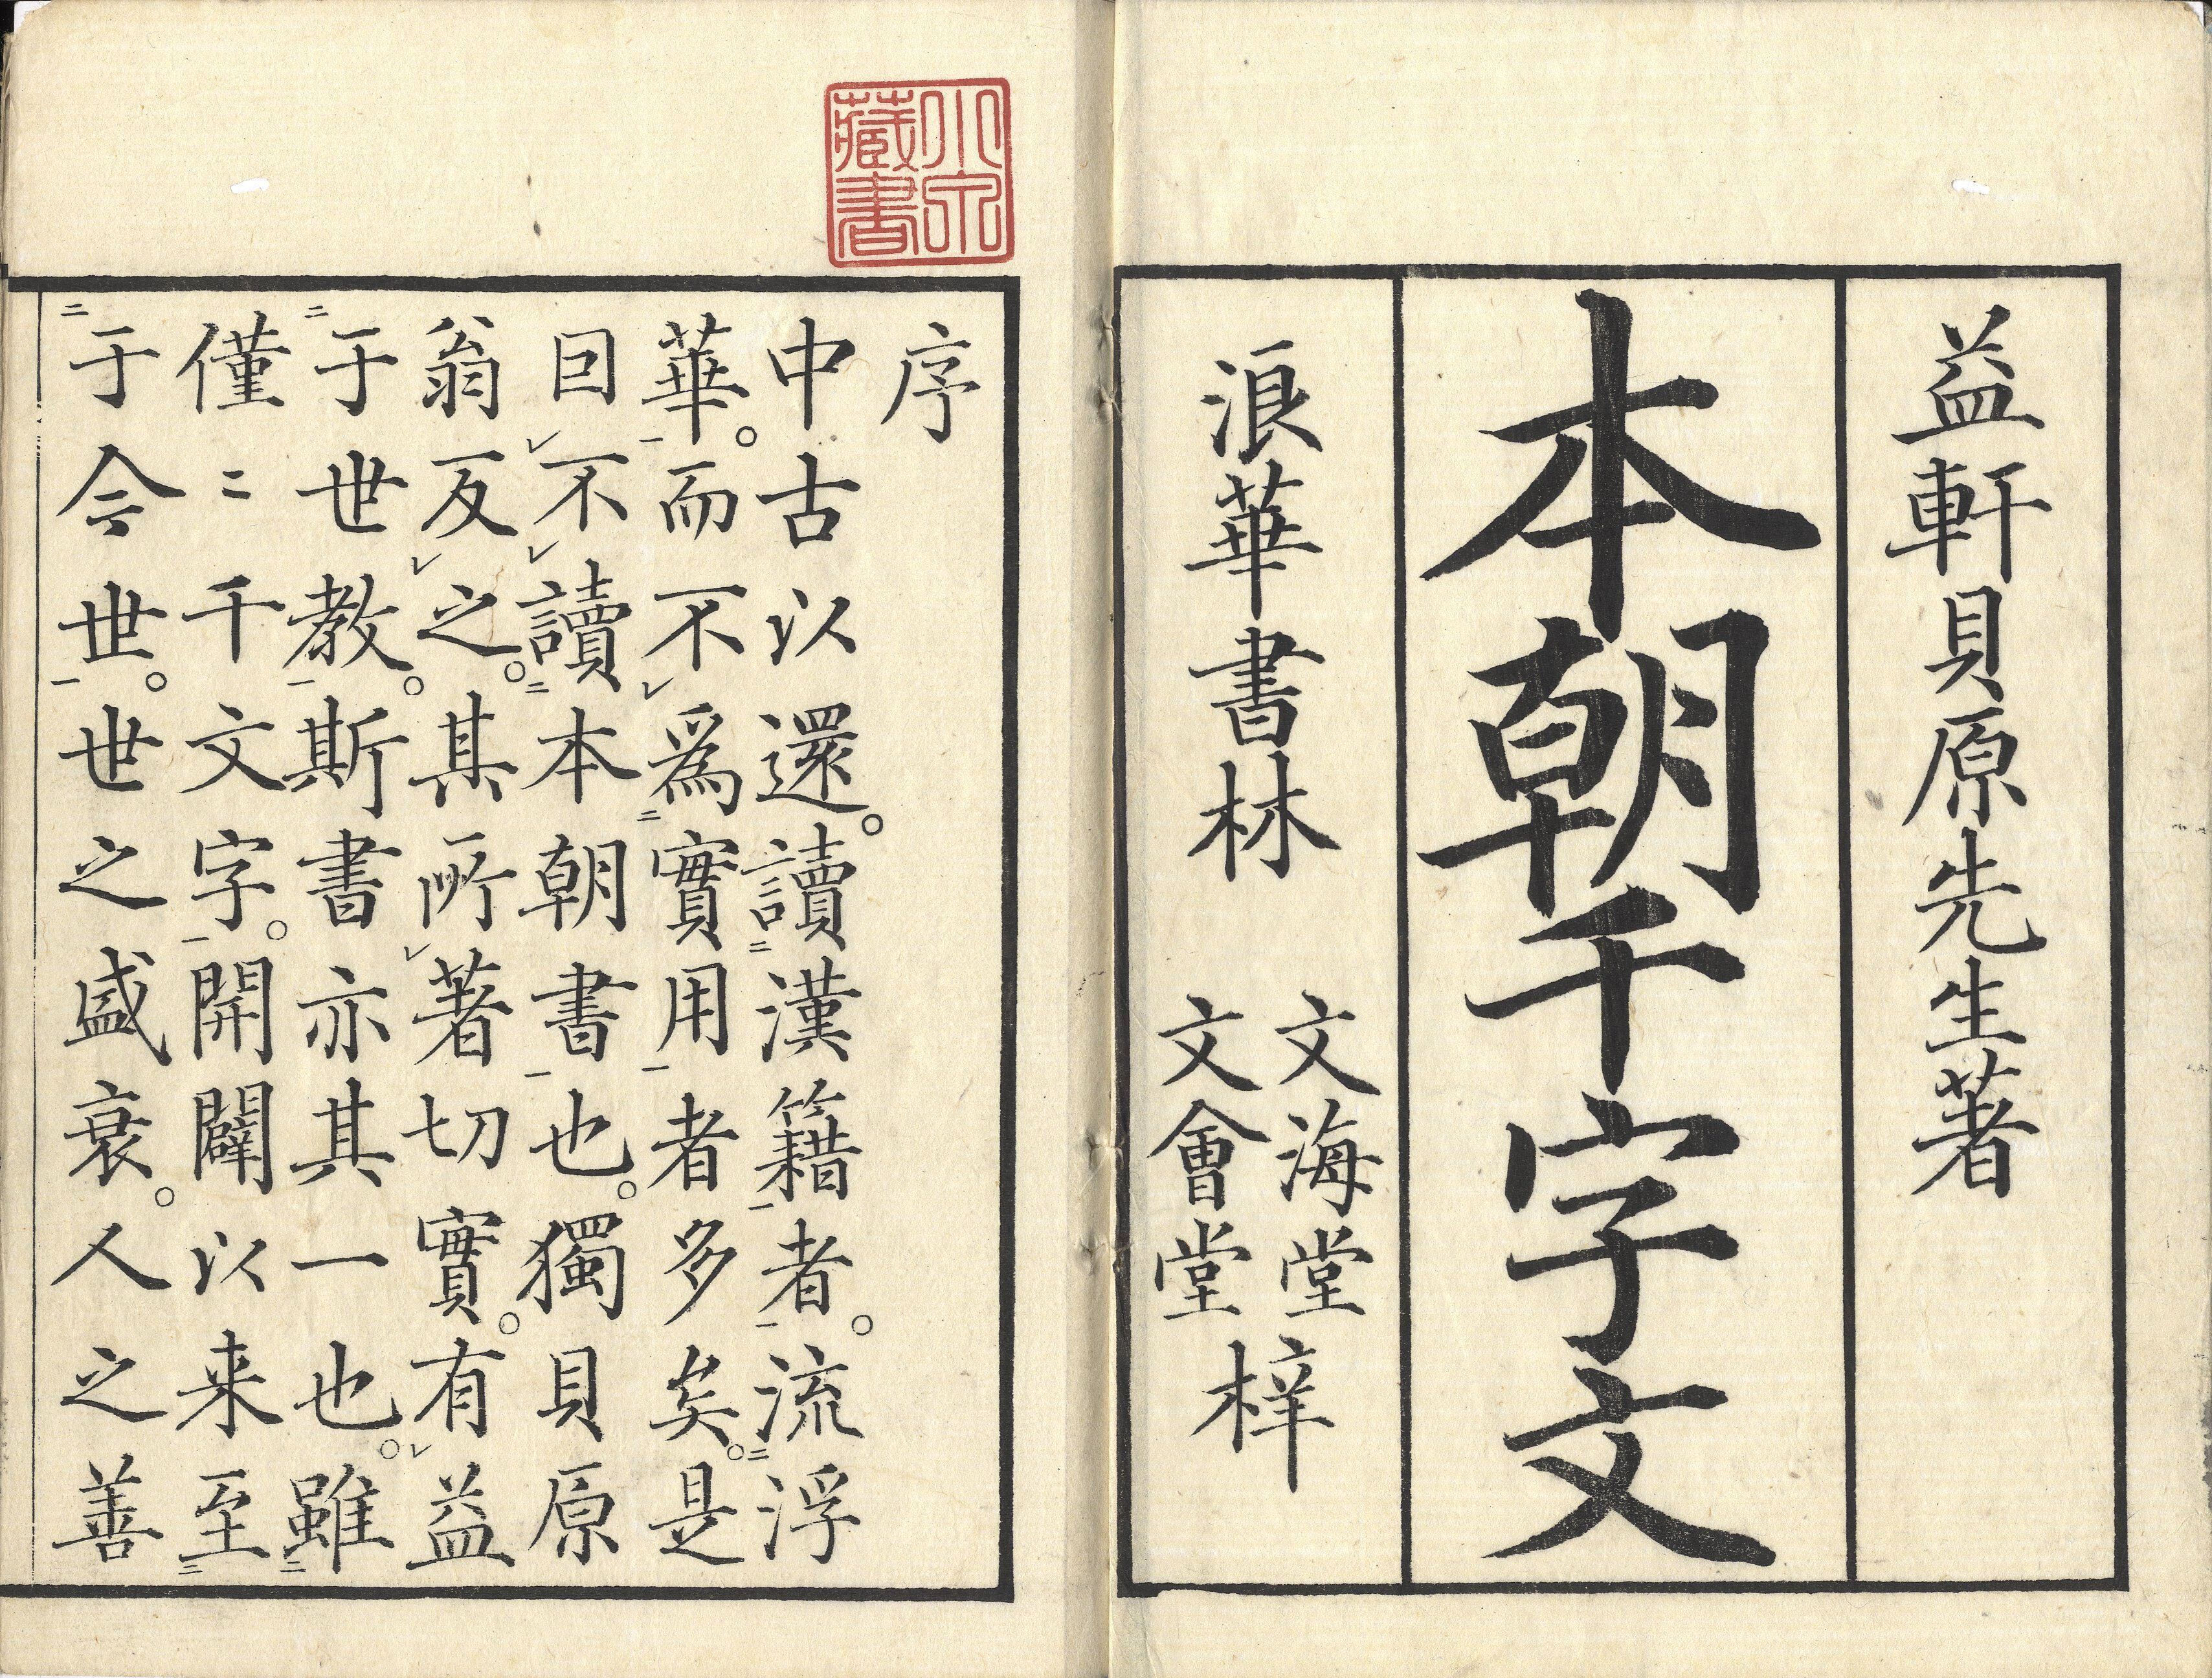 益軒貝原先生著
本朝千字文
浪華書林
文海堂
文會堂
梓
藏書
序
中古以還。讀漢籍者。流浮
華。而不爲實用者多矣。是
囙不讀本朝書也。獨貝原
翁反之。其所著切實。有益
于世教。斯書亦其一也。雖
僅〻千文字。開闢以来至
于今世。世之盛衰。人之善